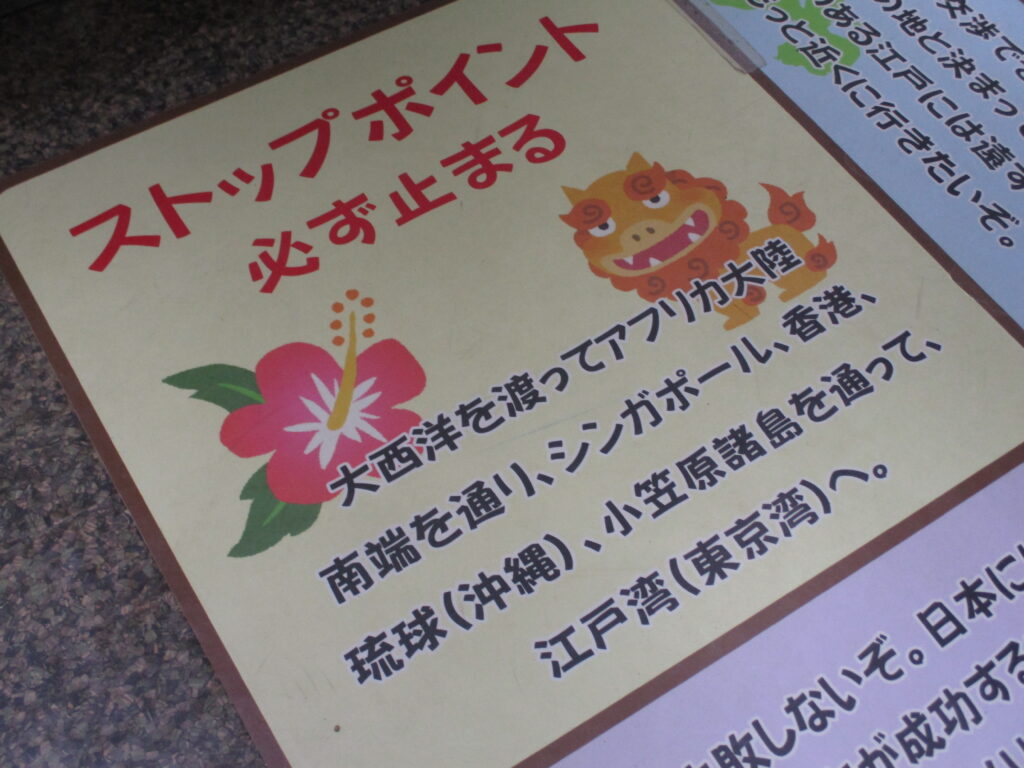 ストップポイント
必ず止まる
大西洋を渡ってアフリカ大陸
南端を通り、シンガポール、香港、
琉球(沖縄)、小笠原諸島を通って、
江戸湾(東京湾)へ。
交渉で
の地と決まっ
ある江戸には遠す
っと近くに行きたいぞ。
敗しないぞ。日本に
が成功する